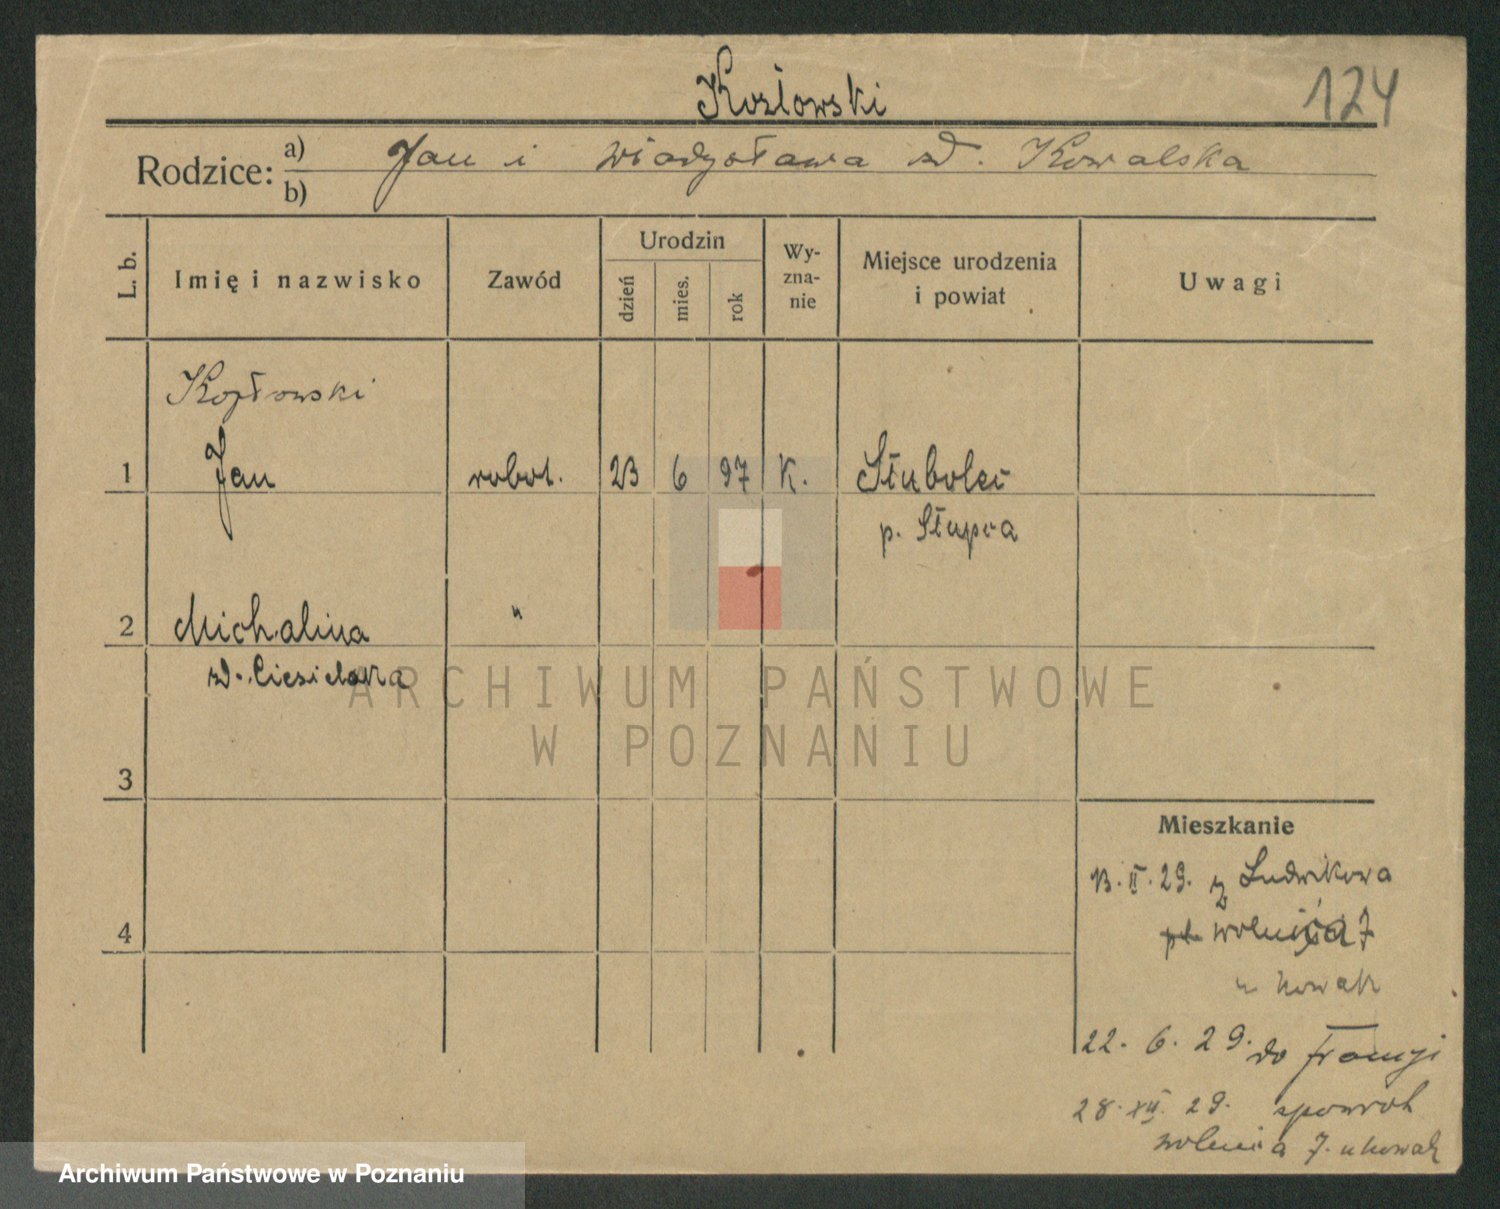 Kozłowski
124
Rodzice: a) Jan i Władysława zd. Kowalska
b)
L. b.
Imię i nazwisko
Zawód
Urodzin
dzień
mies.
rok
Wy-
zna-
nie
Miejsce urodzenia
i powiat
Uwagi
Kozłowski
1 Jan robot. 23 6 97 K.
p. Słupca
2 Michalina "
zd. Ciesielska
3
4
Mieszkanie
13. II. 29. z Ludwikowa
Wolnica 7
u Nowak
22. 6. 29. do Francji
28. XII. 29. spowrot
Wolnica 7. u Nowak
ARCHIWUM PAŃSTWOWE
W POZNANIU
Archiwum Państwowe w Poznaniu